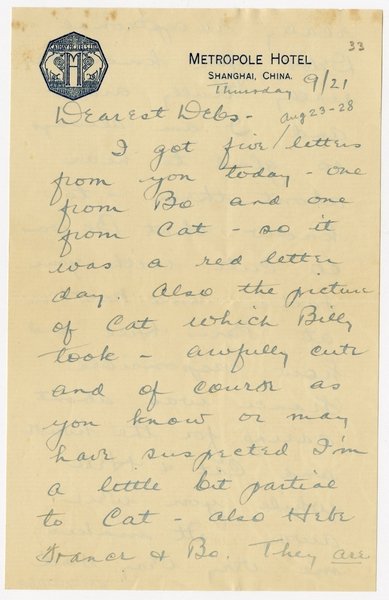 33
METROPOLE HOTEL
SHANGHAI, CHINA.
Thursday 9/21
Dearest Debs -
Aug 23-28
I got five letters
from you today - one
from Bo and one
from Cat - so it
was a red letter
day. Also the picture
of Cat which Billy
took - awfully cute
and of course as
you know or may
have suspected I'm
a little bit partial
to Cat - also Hebe
France & Bo. They are